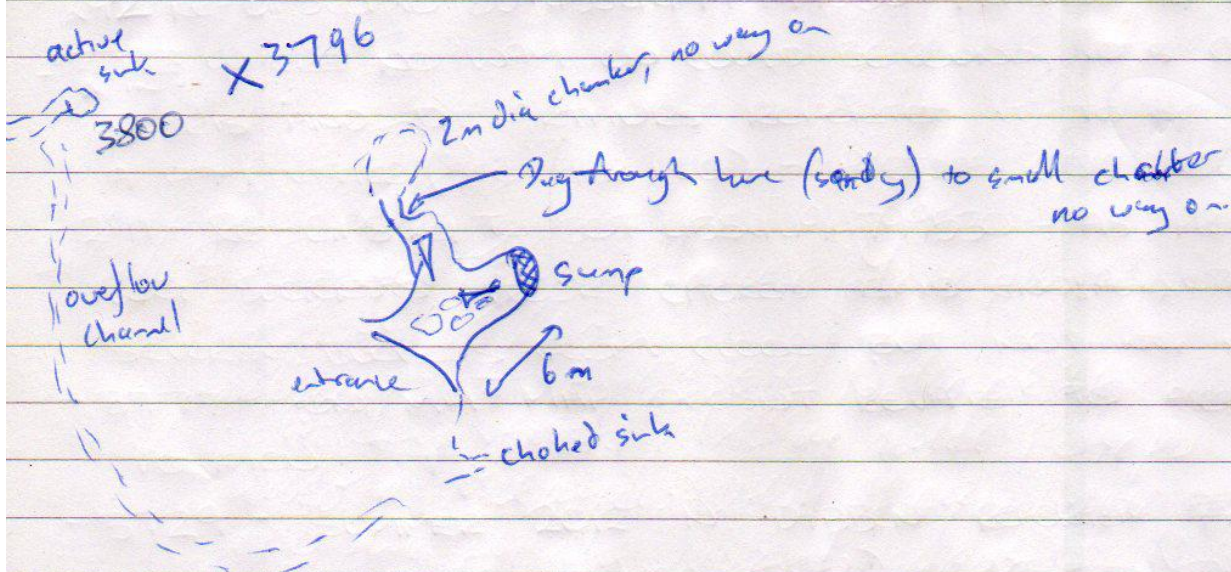 active
sink
X 3796
3800
2m Dia chamber, no way on
Dug through here (sandy) to small chamber
no way on
sump
overflow
channel
6m
entrance
choked sink